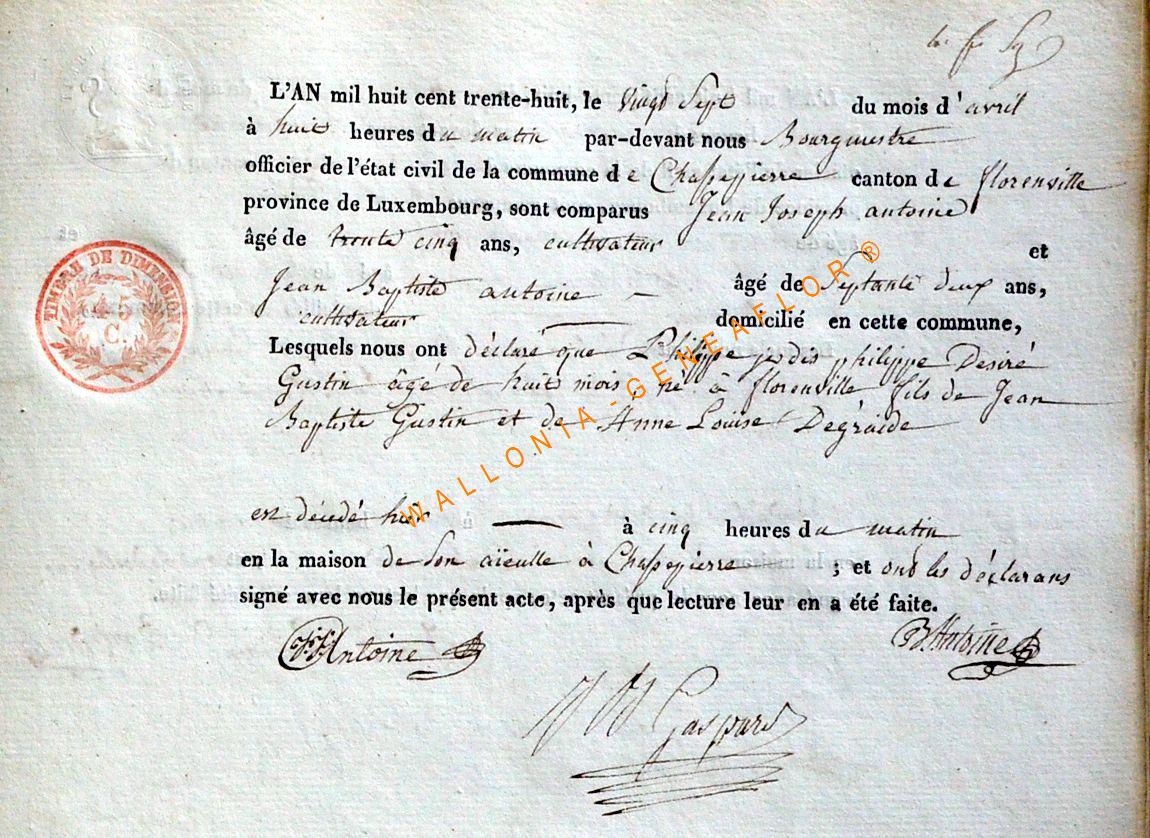 L'AN mil huit cent trente-huit, le vingt Sept du mois d'avril
à huit heures du matin par-devant nous Bourgmestre
officier de l'état civil de la commune de Chassepierre canton de florenville
province de Luxembourg, sont comparus Jean Joseph antoine
âgé de trente cinq ans, cultivateur et
Jean Baptiste antoine — âgé de Septante deux ans,
cultivateur — domicilié en cette commune,
Lesquels nous ont déclaré que Philippe je dis philippe Desiré
Gustin âgé de huit mois, né à florenville, fils de Jean
Baptiste Gustin et de Anne Louise Degraide
est décédé hier — à cinq heures du matin
en la maison de son aïeulle à Chassepierre ; et ont les déclarans
signé avec nous le présent acte, après que lecture leur en a été faite.
JJAntoine BAntoine
Gaspard
TIMBRE DE DIMENSION
45
C.
WALLONIA-GENEAFLOR®